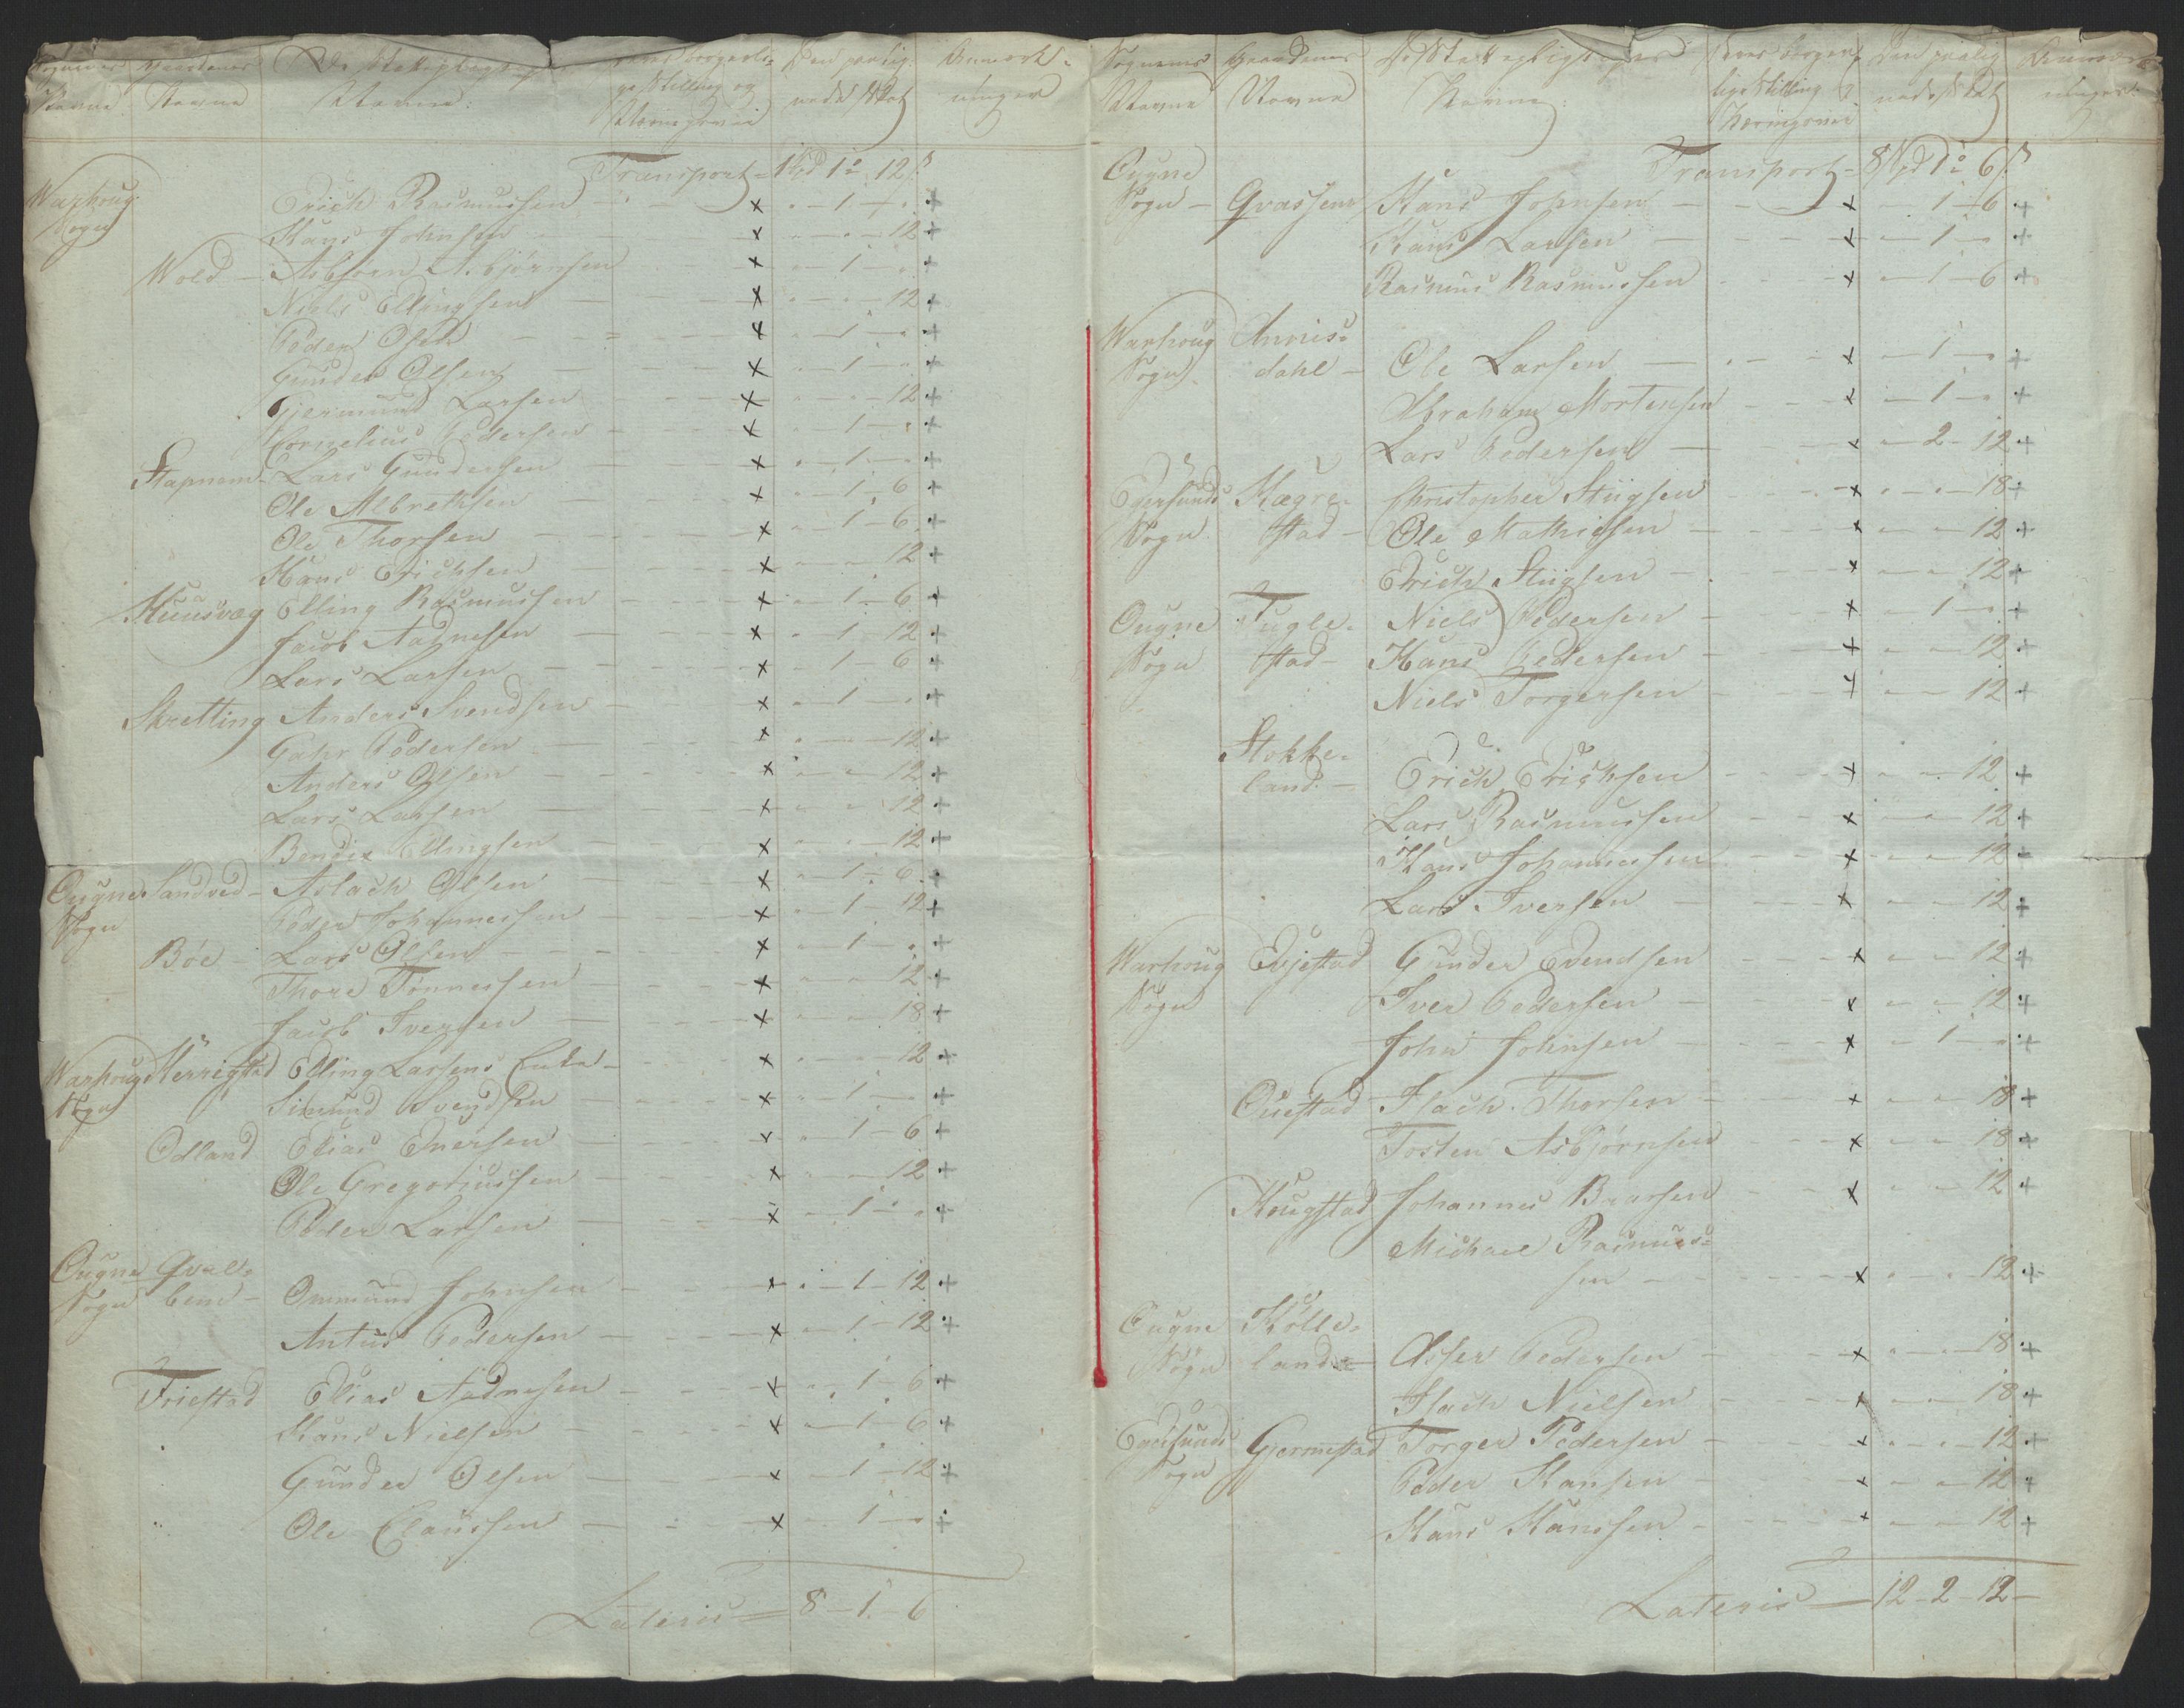 Sognenes Navne | Gaardenes Navne | De Skattepligtiges Navne: | Deres borgerlige Stilling og Næringsvei | Den paalignede Skat | Anmærkninger
Transport = 1 Spd 1 " 12 s
Warhoug Sogn | Erich Rasmussen — x " — 1 — " +
Hans Johnsen — x " — " — 12 +
Wold — Asbjørn Asbjørnsen x " — 1 — " +
Niels Ellingsen — x " — " — 12 +
Peder Olsen — x " — 1 — " +
Gunder Olsen — x " — 1 — " +
Gjermund Larsen x " — " — 12 +
Cornelius Pedersen — x " — 1 — " +
Stapnem — Lars Gundersen x " — 1 — " +
Ole Albrethsen x " — 1 — 6 +
Ole Thorsen — x " — 1 — 6 +
Hans Erichsen — x " — " — 12 +
Huusvæg Elling Rasmussen — x " — 1 — 6 +
Jacob Aadnesen — x " — 1 — 12 +
Lars Larsen — x " — 1 — 6 +
Skretting Anders Svendsen — x " — 1 — " +
Gahr Pedersen — x " — " — 12 +
Anders Olsen — x " — " — 12 +
Lars Larsen — x " — " — 12 +
Bendix Ellingsen — x " — " — 12 +
Ougne Sogn | Sandved — Aslach Olsen x " — 1 — 6 +
Peder Johannessen x " — 1 — 12 +
Bøe — Lars Olsen — x " — 1 — " +
Thore Tønnessen — x " — " — 12 +
Jacob Iversen — x " — " — 18 +
Warhoug Sogn | Herrigstad Elling Larsens Enke — x " — " — 12 +
Simund Svendsen — x " — 1 — " +
Odland Elias Enersen — x " — 1 — 6 +
Ole Gregoriussen — x " — " — 12 +
Peder Larsen — x " — 1 — " +
Ougne Sogn | Qvalbein — Ommund Johnsen — x " — 1 — 12 +
Antus Pedersen — x " — 1 — 12 +
Friestad Elias Aadnesen — x " — 1 — 6 +
Hans Nielsen — x " — 1 — 6 +
Gunder Olsen — x " — 1 — 12 +
Ole Claussen — x " — 1 — " +
Lateris = 8 — 1 — 6
Sognenes Navne | Gaardenes Navne | De Skattepligtiges Navne: | Deres borgerlige Stilling & Næringsvei | Den paalignede Skat | Anmærkninger
Transport — 8 Spd 1 " 6 s
Ougne Sogn — Qvassem Hans Johnsen — x " — 1 — 6 +
Hans Larsen — x " — 1 — " +
Rasmus Rasmussen x " — 1 — 6 +
Warhoug Sogn | Annisdahl — Ole Larsen — x " — 1 — " +
Abraham Mortensen x " — 1 — " +
Lars Pedersen — x " — 2 — 12 +
Egersunds Sogn | Hægrestad — Christopher Stiigsen x " — " — 18 +
Ole Mathiesen — x " — " — 12 +
Erich Stiigsen — x " — " — 12 +
Ougne Sogn | Fuglestad — Niels Pedersen — x " — 1 — " +
Hans Pedersen — x " — " — 12 +
Niels Torgersen — x " — " — 12 +
Stokkeland — Erich Erichsen — x " — " — 12 +
Lars Rasmussen — x " — " — 12 +
Hans Johannessen x " — " — 12 +
Lars Iversen — x " — " — 12 +
Warhoug Sogn | Evjestad Gunder Evendsen x " — " — 12 +
Iver Pedersen — x " — " — 12 +
John Johnsen — x " — 1 — " +
Ouestad Isach Thorsen — x " — " — 18 +
Tosten Asbjørnsen x " — " — 18 +
Hougstad Johannes Brørsen x " — " — 12 +
Michael Rasmus=
sen — x " — " — 12 +
Ougne Sogn | Hølleland — Asser Pedersen — x " — " — 18 +
Isach Nielsen — x " — " — 18 +
Egersunds Sogn | Gjermestad Torger Pedersen — x " — " — 12 +
Peder Hansen — x " — " — 12 +
Hans Hanssen — x " — " — 12 +
Lateris — 12 — 2 — 12 —